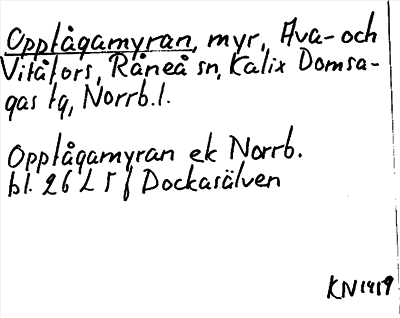 Opptågamyran, myr, Ava- och
Vitåfors, Råneå sn, Kalix Domsa-
gas tg, Norrb.l.
Opptågamyran ek Norrb.
bl. 26 L 5 f Dockasälven
KN1919